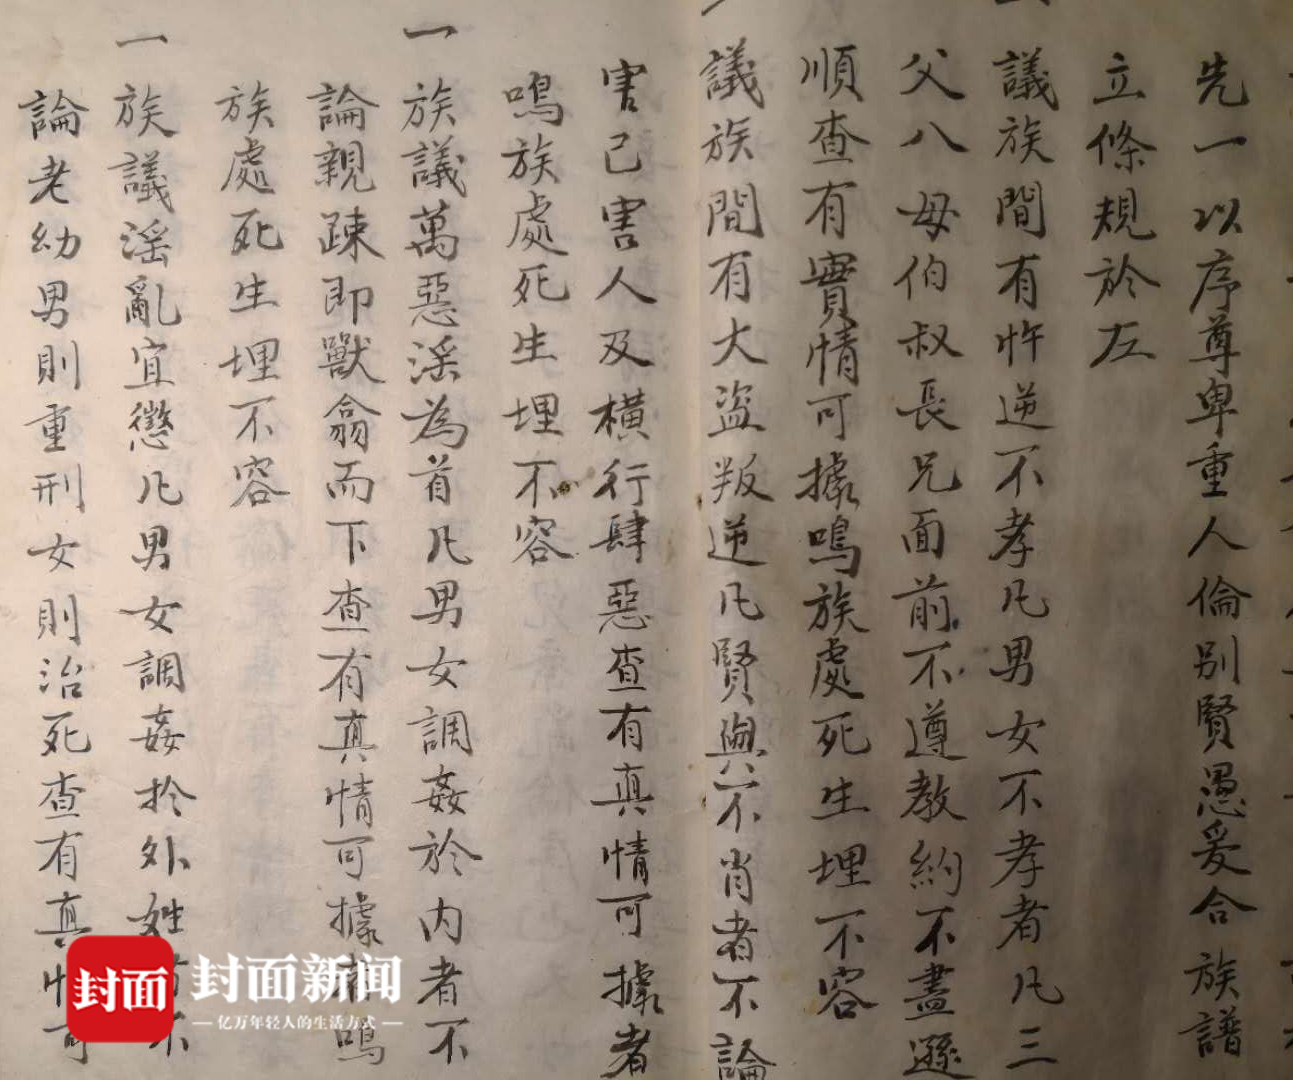 先一以序尊卑重人倫別賢愚爰合族譜
立條規於左
議族間有忤逆不孝凡男女不孝者凡三
父八母伯叔長兄面前不遵教約不盡遜
順查有實情可據鳴族處死生埋不容
議族間有大盜叛逆凡賢與不肖者不論
害己害人及橫行肆惡查有真情可據者
鳴族處死生埋不容
一族議萬惡滛為首凡男女調姦於內者不
論親疎即獸翕而下查有真情可據者鳴
族處死生埋不容
一族議滛亂宜懲凡男女調姦扵外姓者不
論老幼男則重刑女則治死查有真情可
封面
封面新闻
亿万年轻人的生活方式